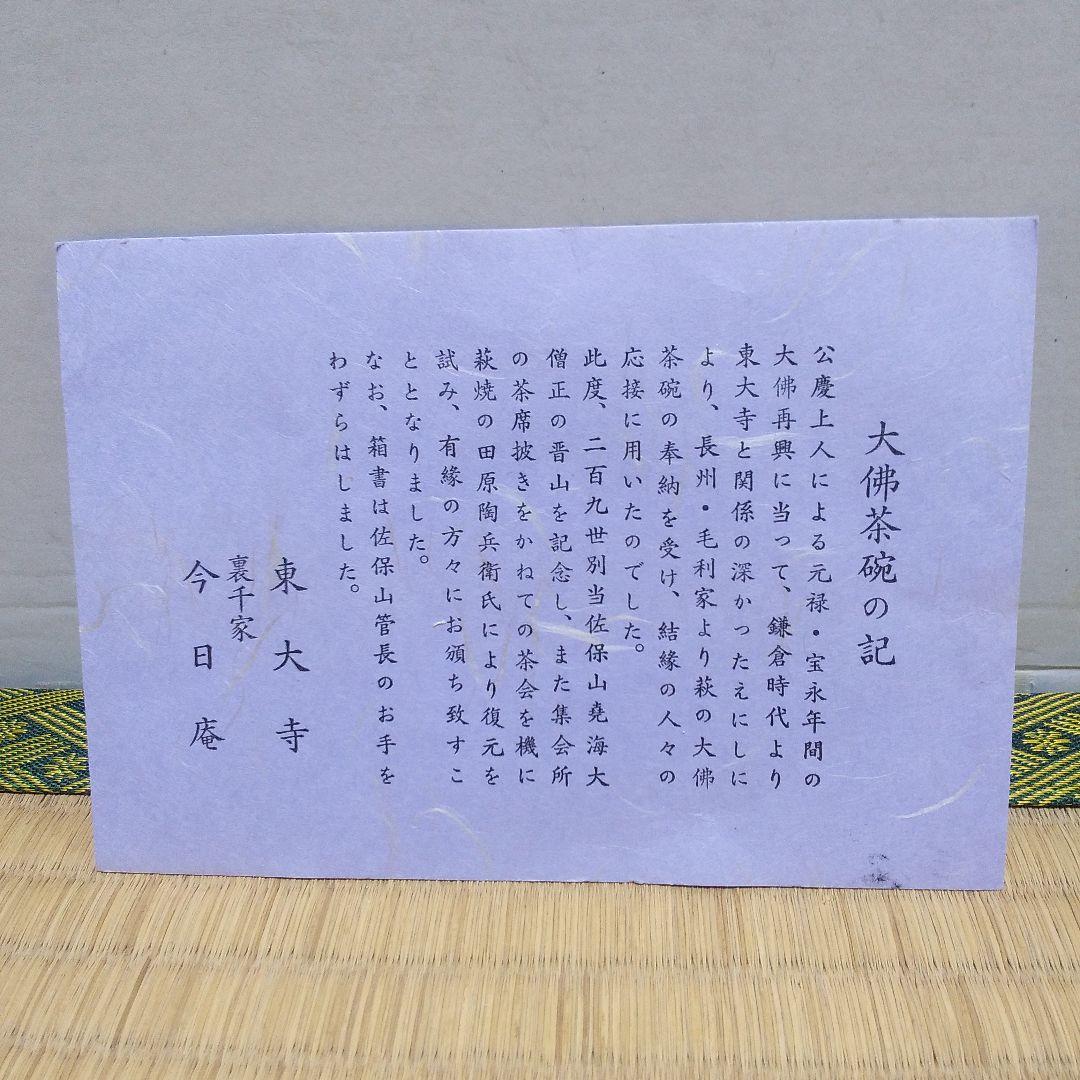 大佛茶碗の記
公慶上人による元禄・宝永年間の
大佛再興に当って、鎌倉時代より
東大寺と関係の深かったえにしに
より、長州・毛利家より萩の大佛
茶碗の奉納を受け、結縁の人々の
応接に用いたのでした。
此度、二百九世別当佐保山堯海大
僧正の晋山を記念し、また集会所
の茶席披きをかねての茶会を機に
萩焼の田原陶兵衛氏により復元を
試み、有縁の方々にお頒ち致すこ
ととなりました。
なお、箱書は佐保山管長のお手を
わずらはしました。
東大寺
裏千家
今日庵